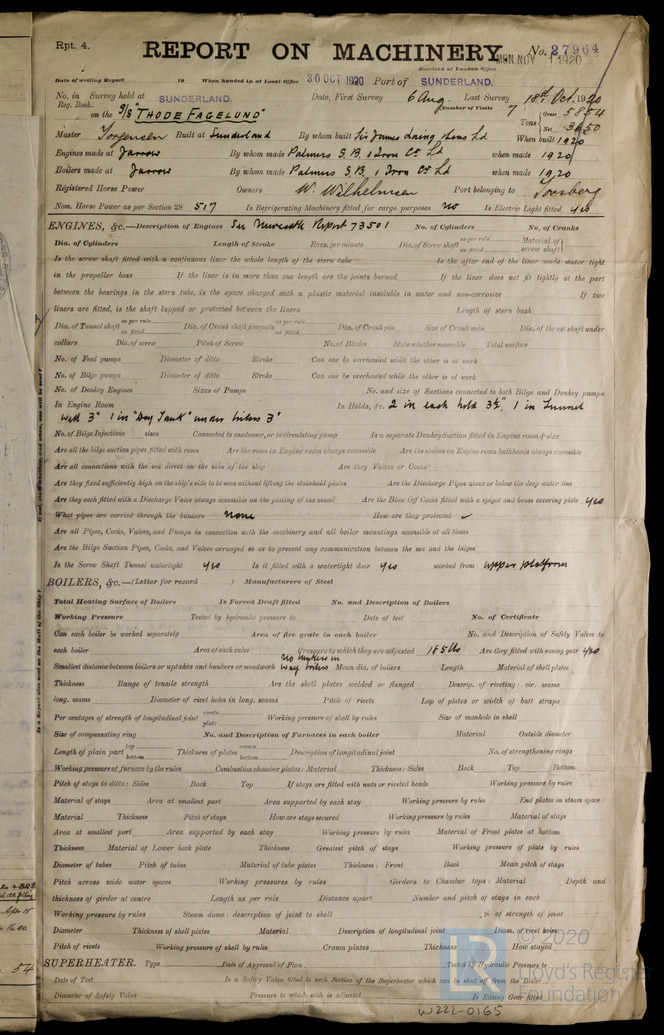 Rpt. 4.
REPORT ON MACHINERY
No. 27964
MON. NOV 1 1920
Received at London Office
Date of writing Report 19 When handed in at Local Office 30 OCT 1920 Port of SUNDERLAND.
No. in Survey held at SUNDERLAND. Date, First Survey 6 Aug. Last Survey 18th Oct. 1920
Reg. Book. Number of Visits 7
on the S/S "THODE FAGELUND" Tons Gross 5854 Net 3650
Master Built at Sunderland By whom built Sir James Laing & Sons Ld When built 1920
Engines made at Jarrow By whom made Palmers S.B. & Iron Co Ld when made 1920
Boilers made at Jarrow By whom made Palmers S.B. & Iron Co Ld when made 1920
Registered Horse Power Owners W. Wilhelmsen Port belonging to Tonsberg
Nom. Horse Power as per Section 28 517 Is Refrigerating Machinery fitted for cargo purposes no Is Electric Light fitted yes
ENGINES, &c.—Description of Engines See Newcastle Report 73501 No. of Cylinders No. of Cranks
Dia. of Cylinders Length of Stroke Revs. per minute Dia. of Screw shaft as per rule as fitted Material of screw shaft
Is the screw shaft fitted with a continuous liner the whole length of the stern tube Is the after end of the liner made water tight
in the propeller boss If the liner is in more than one length are the joints burned If the liner does not fit tightly at the part
between the bearings in the stern tube, is the space charged with a plastic material insoluble in water and non-corrosive If two
liners are fitted, is the shaft lapped or protected between the liners Length of stern bush
Dia. of Tunnel shaft as per rule as fitted Dia. of Crank shaft journals as per rule as fitted Dia. of Crank pin Size of Crank webs Dia. of thrust shaft under
collars Dia. of screw Pitch of Screw No. of Blades State whether moveable Total surface
No. of Feed pumps Diameter of ditto Stroke Can one be overhauled while the other is at work
No. of Bilge pumps Diameter of ditto Stroke Can one be overhauled while the other is at work
No. of Donkey Engines Sizes of Pumps No. and size of Suctions connected to both Bilge and Donkey pumps
In Engine Room In Holds, &c. 2 in each hold 3½". 1 in Tunnel
well 3" 1 in "Dry Tank" under boilers 3"
No. of Bilge Injections sizes Connected to condenser, or to circulating pump Is a separate Donkey Suction fitted in Engine room & size
Are all the bilge suction pipes fitted with roses Are the roses in Engine room always accessible Are the sluices on Engine room bulkheads always accessible
Are all connections with the sea direct on the skin of the ship Are they Valves or Cocks
Are they fixed sufficiently high on the ship's side to be seen without lifting the stokehold plates Are the Discharge Pipes above or below the deep water line
Are they each fitted with a Discharge Valve always accessible on the plating of the vessel Are the Blow Off Cocks fitted with a spigot and brass covering plate yes
What pipes are carried through the bunkers none How are they protected ✓
Are all Pipes, Cocks, Valves, and Pumps in connection with the machinery and all boiler mountings accessible at all times
Are the Bilge Suction Pipes, Cocks, and Valves arranged so as to prevent any communication between the sea and the bilges
Is the Screw Shaft Tunnel watertight yes Is it fitted with a watertight door yes worked from upper platform
BOILERS, &c.—(Letter for record ) Manufacturers of Steel
Total Heating Surface of Boilers Is Forced Draft fitted No. and Description of Boilers
Working Pressure Tested by hydraulic pressure to Date of test No. of Certificate
Can each boiler be worked separately Area of fire grate in each boiler No. and Description of Safety Valves to
each boiler Area of each valve Pressure to which they are adjusted 185 lbs Are they fitted with easing gear yes
Smallest distance between boilers or uptakes and bunkers or woodwork no bunkers in way boilers Mean dia. of boilers Length Material of shell plates
Thickness Range of tensile strength Are the shell plates welded or flanged Descrip. of riveting: cir. seams
long. seams Diameter of rivet holes in long. seams Pitch of rivets Lap of plates or width of butt straps
Per centages of strength of longitudinal joint rivets plate Working pressure of shell by rules Size of manhole in shell
Size of compensating ring No. and Description of Furnaces in each boiler Material Outside diameter
Length of plain part top bottom Thickness of plates crown bottom Description of longitudinal joint No. of strengthening rings
Working pressure of furnace by the rules Combustion chamber plates: Material Thickness: Sides Back Top Bottom
Pitch of stays to ditto: Sides Back Top If stays are fitted with nuts or riveted heads Working pressure by rules
Material of stays Area at smallest part Area supported by each stay Working pressure by rules End plates in steam space:
Material Thickness Pitch of stays How are stays secured Working pressure by rules Material of stays
Area at smallest part Area supported by each stay Working pressure by rules Material of Front plates at bottom
Thickness Material of Lower back plate Thickness Greatest pitch of stays Working pressure of plate by rules
Diameter of tubes Pitch of tubes Material of tube plates Thickness: Front Back Mean pitch of stays
Pitch across wide water spaces Working pressures by rules Girders to Chamber tops: Material Depth and
thickness of girder at centre Length as per rule Distance apart Number and pitch of stays in each
Working pressure by rules Steam dome: description of joint to shell % of strength of joint
Diameter Thickness of shell plates Material Description of longitudinal joint Diam. of rivet holes
Pitch of rivets Working pressure of shell by rules Crown plates Thickness How stayed
SUPERHEATER. Type Date of Approval of Plan Tested by Hydraulic Pressure to
Date of Test Is a Safety Valve fitted to each Section of the Superheater which can be shut off from the Boiler
Diameter of Safety Valve Pressure to which each is adjusted Is Easing Gear fitted
© 2020
Lloyd's Register
Foundation
W222-0165
54